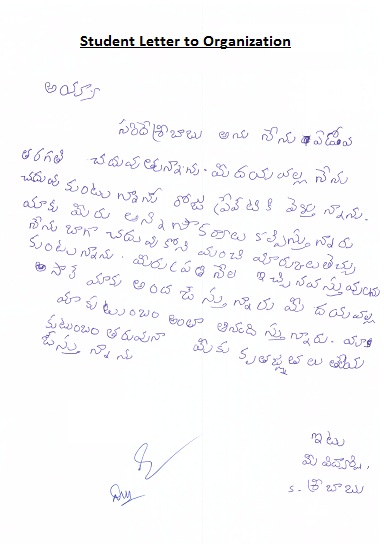 Student Letter to Organization
అయ్యా
హరిదేశ్రీబాబు అను నేను ఏడోవ
తరగతి చదువుతున్నాను. మీ దయవల్ల నేను
చదువుకుంటున్నాను రోజు ప్రేవేట్‌కి వెళ్తున్నాను.
మాకు మీరు అన్ని సౌకర్యాలు కల్పిస్తున్నారు
నేను బాగా చదువుకోని మంచి మార్కులుతెచ్చు
కుంటున్నాను. మీరు ప్రతి నెల ఇచ్చే
మాకు అంద జేస్తున్నారు మీ దయవల్ల
మా కుటుంబం అంలా ఆనందిస్తున్నారు. మా
కుటుంబం తరువునా మీకు కృతజ్ఞతలు తెలియ
జేస్తున్నాను
ఇటు
మీ విద్యార్థి,
s. శ్రీ బాబు